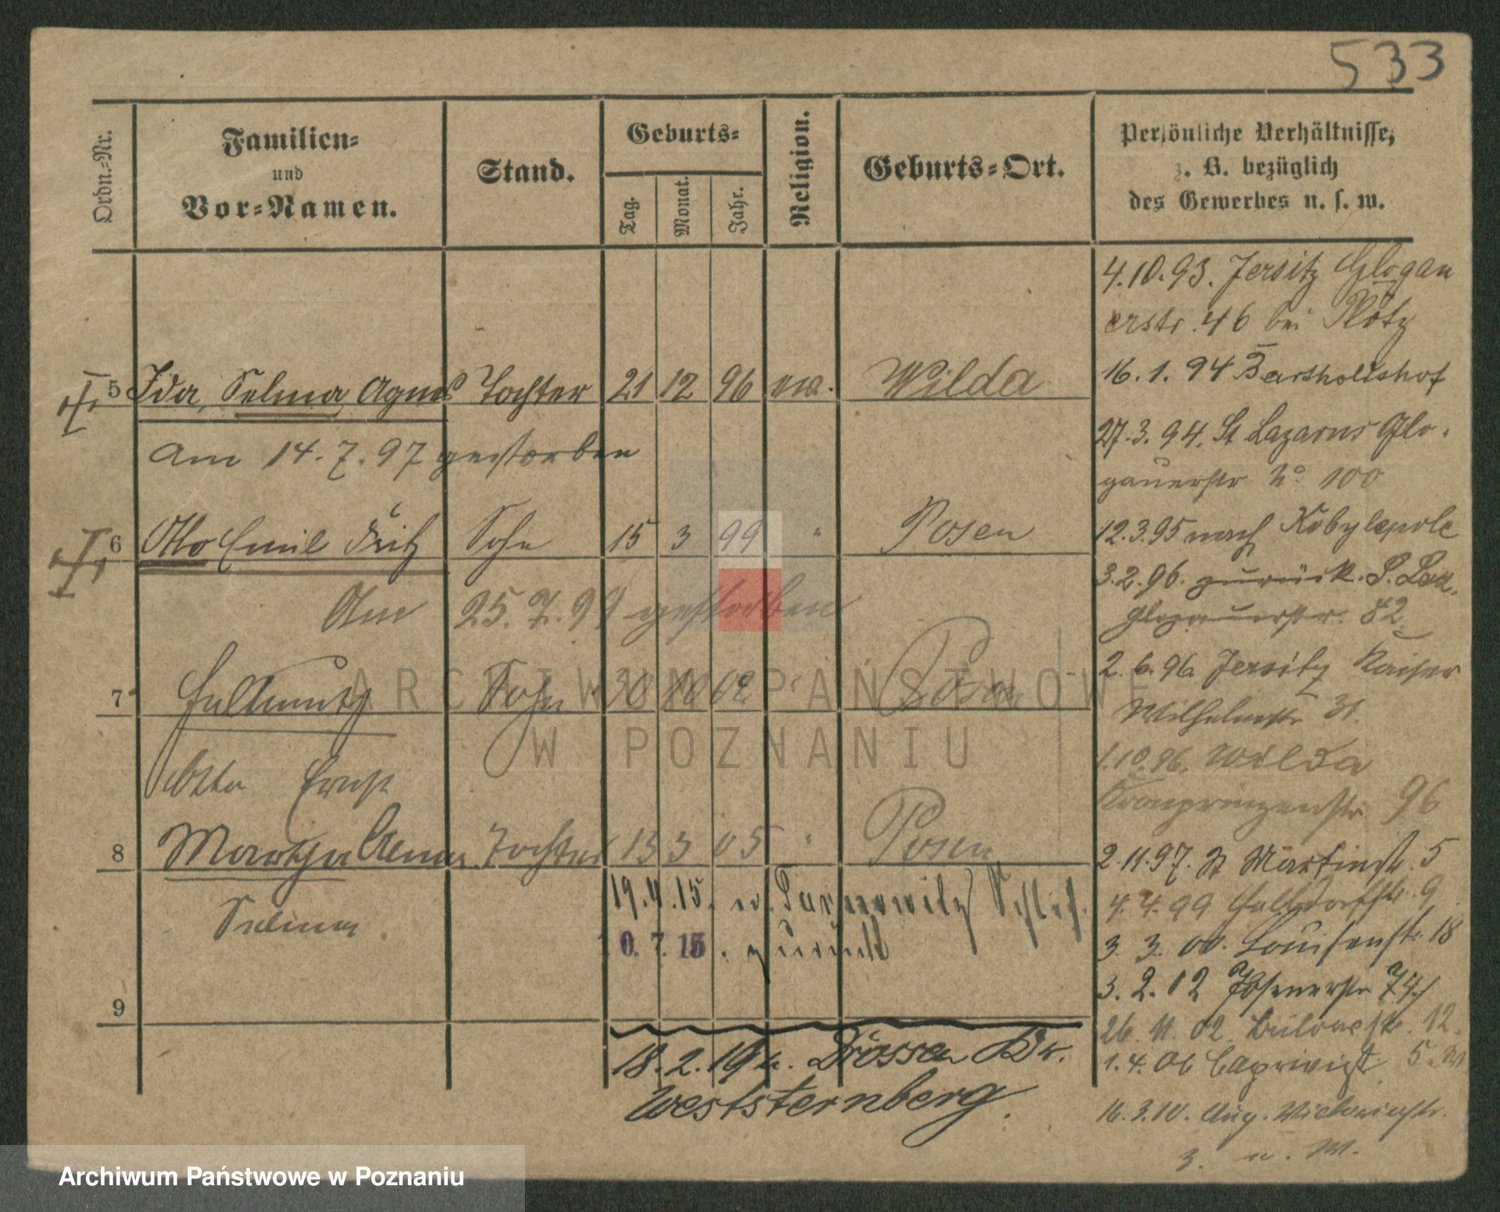 533
Ordn.-Nr.
Familien-
und
Vor-Namen.
Stand.
Geburts-
Tag.
Monat.
Jahr.
Religion.
Geburts-Ort.
Persönliche Verhältnisse,
z. B. bezüglich
des Gewerbes u. s. w.
4.10.93. Jersitz Glogau
erstr. 46 bei Plötz
5 Ida, Selma, Agnes Tochter 21 12 96 ev. Wilda
16.1.94 Bartholdshof
am 14.7.97 gestorben
27.3.94. St Lazarus Glo-
gauerstr No 100
6 Otto Emil Fritz Sohn 15 3 99 " Posen
12.3.95 nach Kobylepole
3.2.96. zurück. S. Laz.
Glogauerstr. 82
Am 25.7.99 gestorben
7 Sohn 02 " Posen
2.6.96 Jersitz Kaiser
Wilhelmstr. 31.
1.10.96. Wilda
Kronprinzenstr. 96
Otto Ernst
8 Martha Anna Tochter 13 3 05 " Posen
2.11.97. St Martinstr. 5
Selma
19.4.15. n. Tarnowitz Schles.
4.4.99 9
0.7.15. zurück
3.3.00. Louisenstr. 18
3.2.02 Posenerstr.
9
26.11.02. Bülowstr. 12.
18.2.19 n. Drossen Kr.
Weststernberg.
1.4.06 Caprivistr. 5
16.3.10. Aug. Victoriastr.
3. u. W.
ARCHIWUM PAŃSTWOWE
W POZNANIU
Archiwum Państwowe w Poznaniu